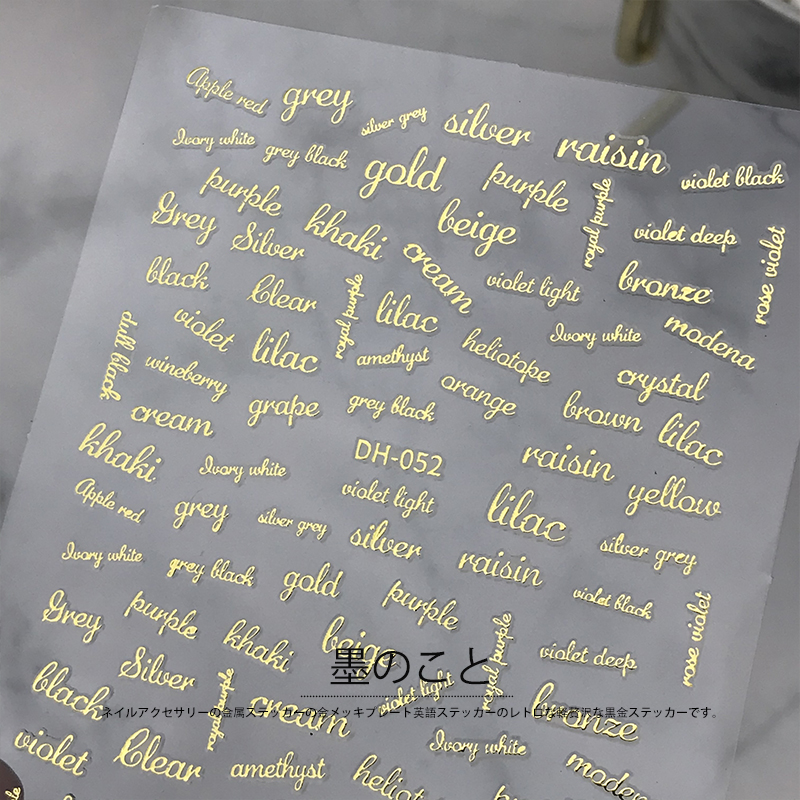 Apple red grey silver grey silver raisin violet black
Ivory white grey black gold purple royal purple violet deep rose violet
purple Grey Silver khaki beige cream violet light bronze
black Clear royal purple lilac Ivory white modena
dull black violet lilac amethyst heliotope crystal
wineberry grape grey black orange brown lilac
cream
khaki Ivory white DH-052 raisin yellow
violet light lilac
Apple red grey silver grey silver raisin silver grey
Ivory white grey black gold purple violet black rose violet
Grey purple khaki beige royal purple violet deep
墨のこと
Silver black purple cream violet light bronze
ネイルアクセサリーの金属ステッカーの金メッキプレート英語ステッカーのレトロな軽贅沢な黒金ステッカーです。
violet Clear amethyst Ivory white